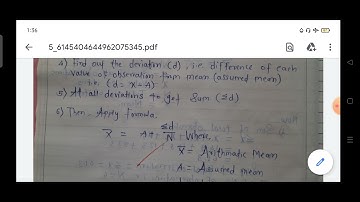 1:56
5_6145404644962075345.pdf
4) Find out the deviation (d), i.e. difference of each
value of observation from mean (assured mean)
i.e. (d = X - A)
5) At all deviations to get Sum (Σd)
6) Then Apply formula
X̅ = A + Σd/N Where
X̅ = Arithmatic Mean
A = Assured mean